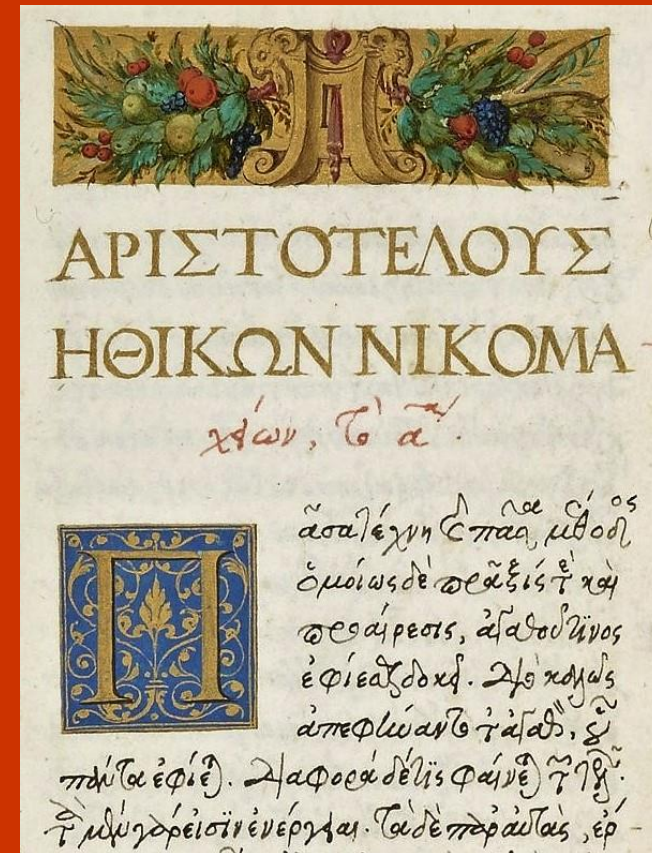 ΑΡΙΣΤΟΤΕΛΟΥΣ
ΗΘΙΚΩΝ ΝΙΚΟΜΑ
χείων, τὸ α
Πᾶσα τέχνη καὶ πᾶσα μέθοδος
ὁμοίως δὲ πρᾶξίς τε καὶ
προαίρεσις, ἀγαθοῦ τινος
ἐφίεσθαι δοκεῖ. Διὸ καλῶς
ἀπεφήναντο τἀγαθὸν, οὗ
πάντα ἐφίεται. Διαφορὰ δέ τις φαίνεται τῶν τελῶν.
τὰ μὲν γάρ εἰσιν ἐνέργειαι. Τὰ δὲ παρ' αὐτὰς, ἔρ